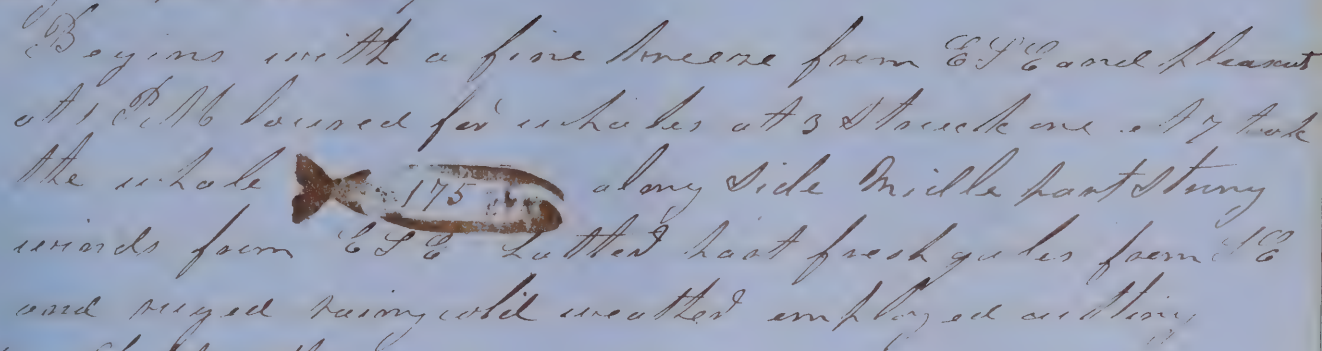 Begins with a fine breeze from ESE and pleasant
at 1 PM lowred for whales at 3 Struck one at 7 took
the whale 175 along Side Midle part Strong
winds from ESE Latter part fresh gales from SE
and ruged rainy cold weather employed cutting